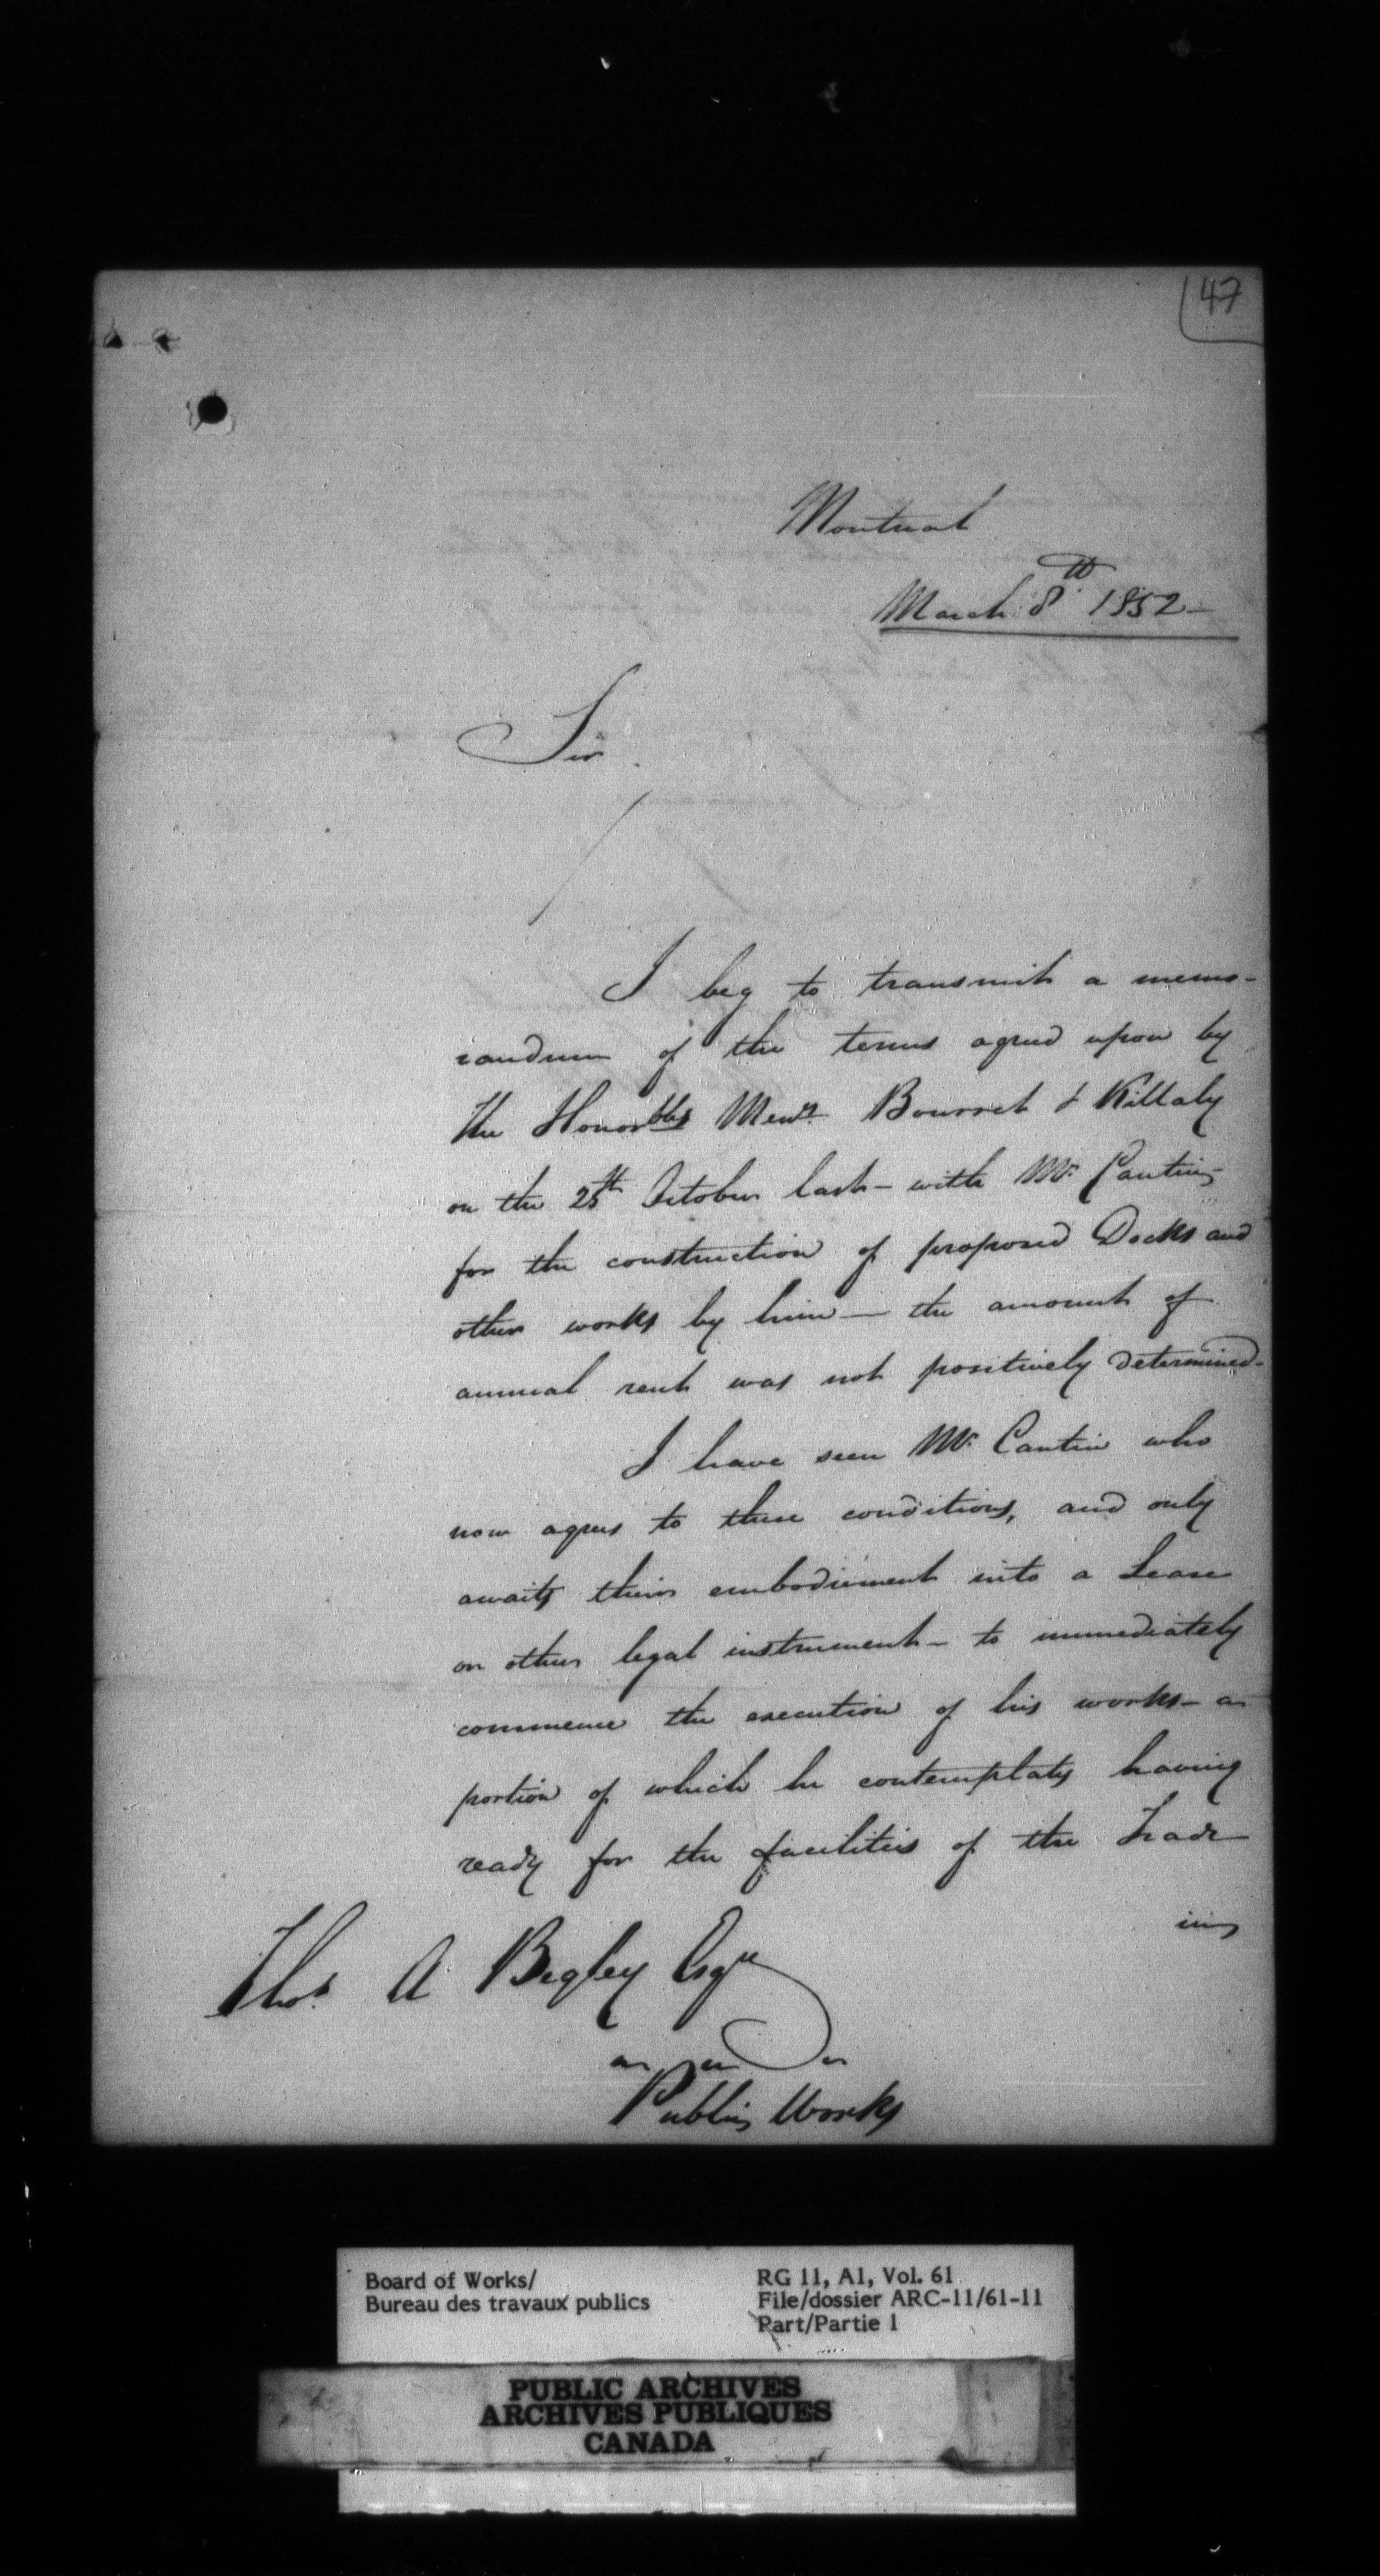 47
Montreal
March 8th 1852
Sir
I beg to transmit a memo-
randum of the terms agreed upon by
The Honorbles Messrs Bourret & Killaly
on the 25th October last - with Mr Cantin
for the construction of proposed Docks and
other works by him - the amount of
annual rent was not positively determined -
I have seen Mr Cantin who
now agrees to these conditions, and only
awaits their embodiement into a Lease
or other legal instrument - to immediately
commence the execution of his works - a
portion of which he contemplates having
ready for the facilities of the Trade
in
Thos A Begley Esqre
Public Works
Board of Works/
Bureau des travaux publics
RG 11, A1, Vol. 61
File/dossier ARC-11/61-11
Part/Partie 1
PUBLIC ARCHIVES
ARCHIVES PUBLIQUES
CANADA